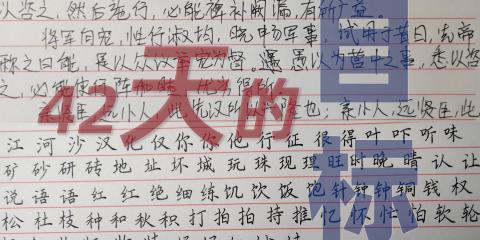 以咨之，然后施行，必能裨补阙漏，有所广益。
将军向宠，性行淑均，晓畅军事，试用于昔日，先帝
称之曰能，是以众议举宠为督。愚以为营中之事，悉以咨
之，必能使行阵和睦，优劣得所。
亲贤臣，远小人，此先汉所以兴隆也；亲小人，远贤臣，此
42天的
目标
江河沙汉化仅你你他行征很得叶吓听味
矿砂研砖地址坏城玩珠现理旺时晚晴认让
说语语红红绝细练饥饮饭饱针钟钟铜钱权
松杜枝种和秋积打拍拍持推忆怀忙怕软轮